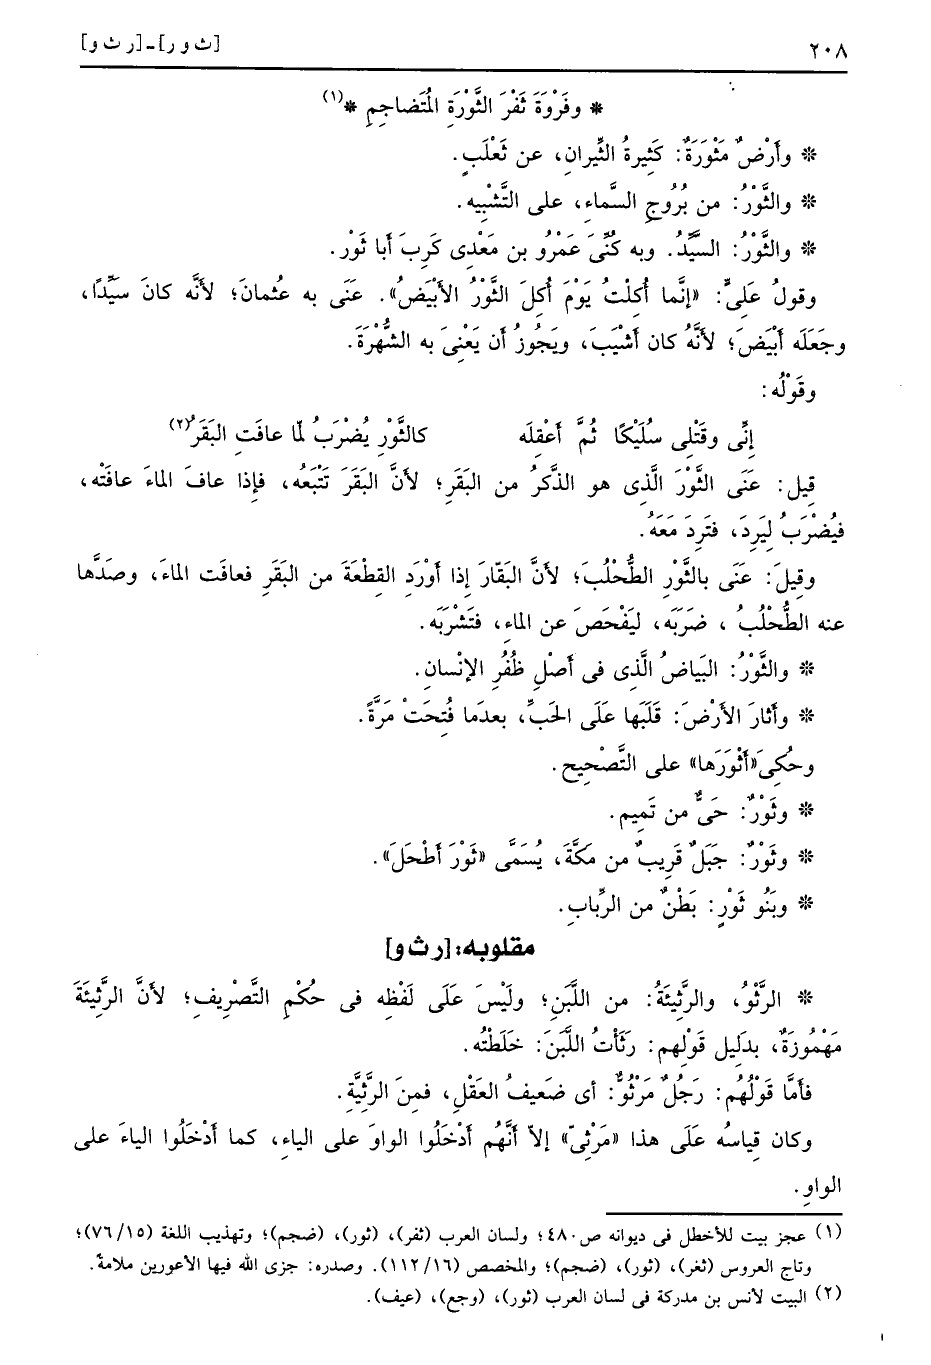 ٢٠٨ [ث و ر]ـ[ر ث و]
* وفَرْوَةَ ثَفْرَ الثَّوْرَةِ المُتَضاجِمِ *(١)
* وأَرْضٌ مَثْوَرَةٌ: كَثِيرةُ الثِّيرانِ، عن ثَعْلَبٍ.
* والثَّوْرُ: من بُرُوجِ السَّماءِ، على التَّشْبِيه.
* والثَّوْرُ: السيِّدُ. وبه كُنِّىَ عَمْرُو بن مَعْدِى كَرِبَ أبا ثَوْر.
وقولُ عَلىٍّ: «إنَّما أُكِلْتُ يَوْمَ أُكِلَ الثَّوْرُ الأَبْيَضُ». عَنَى به عثمانَ؛ لأنَّه كانَ سَيِّدًا،
وجَعَلَه أبْيَضَ؛ لأنَّهُ كان أشْيَبَ، ويَجُوزُ أن يَعْنِىَ به الشُّهْرَةَ.
وقَوْلُه:
إنِّى وقَتْلِى سُلَيْكًا ثُمَّ أَعْقِلَه كالثَّوْرِ يُضْرَبُ لمّا عافَتِ البَقَرُ(٢)
قيل: عَنَى الثَّوْرَ الَّذِى هو الذَّكَرُ من البَقَرِ؛ لأنَّ البَقَرَ تَتْبَعُه، فإذا عافَ الماءَ عافَتْه،
فيُضْرَبُ لِيَرِدَ، فتَرِدَ مَعَهُ.
وقِيلَ: عَنَى بالثَّوْرِ الطُّحْلُبَ؛ لأنَّ البَقّارَ إذا أوْرَدِ القِطْعَةَ من البَقَرِ فعافَت الماءَ، وصَدَّها
عنه الطُّحْلُبُ ، ضَرَبَه، ليَفْحَصَ عن الماءِ، فتَشْرَبَه.
* والثَّوْرُ: البَياضُ الَّذِى فى أصْلِ ظُفُرِ الإنْسانِ.
* وأثارَ الأَرْضَ: قَلَبَها عَلَى الحَبِّ، بعدَما فُتِحَتْ مَرَّةً.
وحُكِىَ«أثْوَرَها» على التَّصْحِيح.
* وثَوْرٌ: حَىٌّ من تَمِيم.
* وثَوْرٌ: جَبَلٌ قَرِيبٌ من مَكَّةَ، يُسَمَّى «ثَوْرَ أَطْحَلَ».
* وبَنُو ثَوْرٍ: بَطْنٌ من الرِّباب.
مقلوبه: [ر ث و]
* الرَّثْوُ، والرَّثِيئَةُ: من اللَّبَنِ؛ ولَيْسَ عَلَى لَفْظِه فى حُكْمِ التَّصْرِيفِ؛ لأنَّ الرَّثِيئَةَ
مَهْمُوزَةٌ، بدَلِيل قَوْلِهم: رَثَأْتُ اللَّبَنَ: خَلَطْتُه.
فأمَّا قَوْلُهُم: رَجُلٌ مَرْثُوٌّ: أى ضَعِيفُ العَقْلِ، فمِنَ الرَّثِيَّةِ.
وكان قِياسُه عَلَى هذا «مَرْثِىّ» إلاّ أنَّهُم أدْخَلُوا الواوَ على الياءِ، كما أدْخَلُوا الياءَ على
الواوِ.
(١) عجز بيت للأخطل فى ديوانه ص٤٨٠؛ ولسان العرب (ثفر)، (ثور)، (ضجم)؛ وتهذيب اللغة (٧٦/١٥)؛
وتاج العروس (ثغر)، (ثور)، (ضجم)؛ والمخصص (١١٢/١٦). وصدره: جزى الله فيها الأعورين ملامة.
(٢) البيت لأنس بن مدركة فى لسان العرب (ثور)، (وجع)، (عيف).